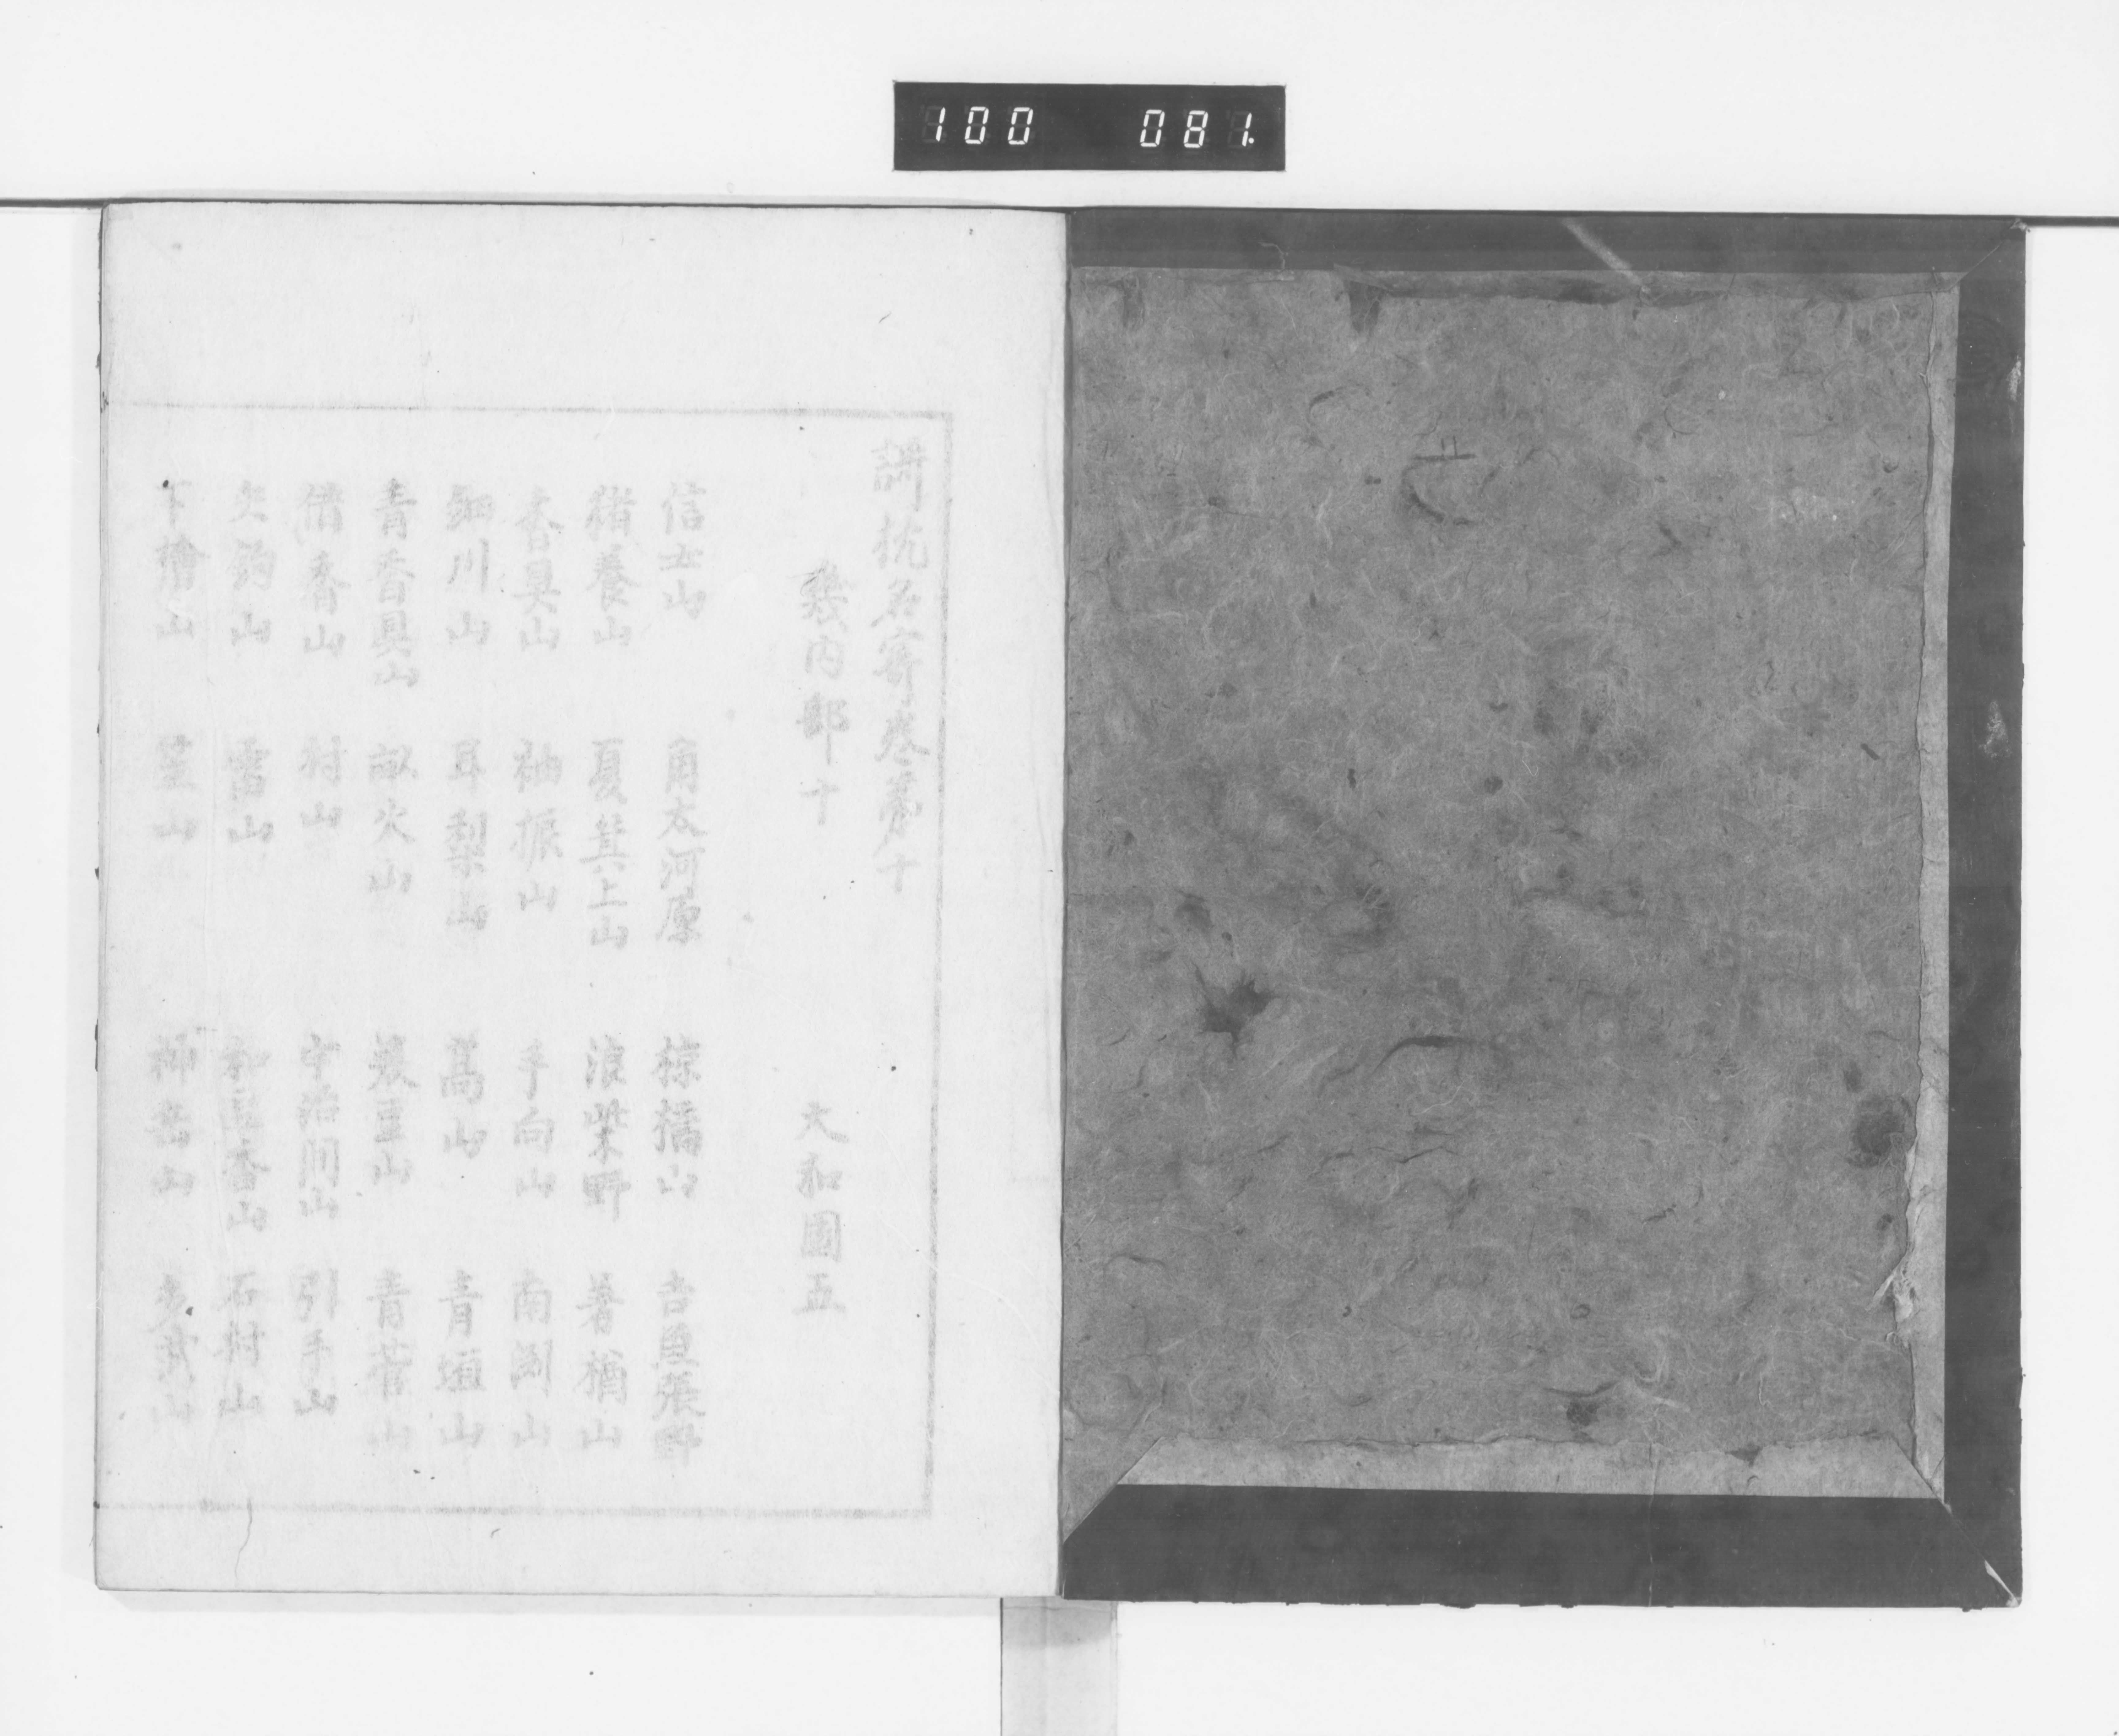 100 081.
謌枕名寄卷第十
畿内部十 大和國五
信士山 角太河原 椋橋山 吉魚張野
猪養山 夏箕上山 浪柴野 著楢山
香具山 袖振山 手向山 南淵山
細川山 耳梨山 高山 青垣山
青香具山 畝火山 青菅山
借香山 村山 宇治間山 引手山
矢釣山 雷山 香山 石村山
下檜山 笠山 神岳山 多武山